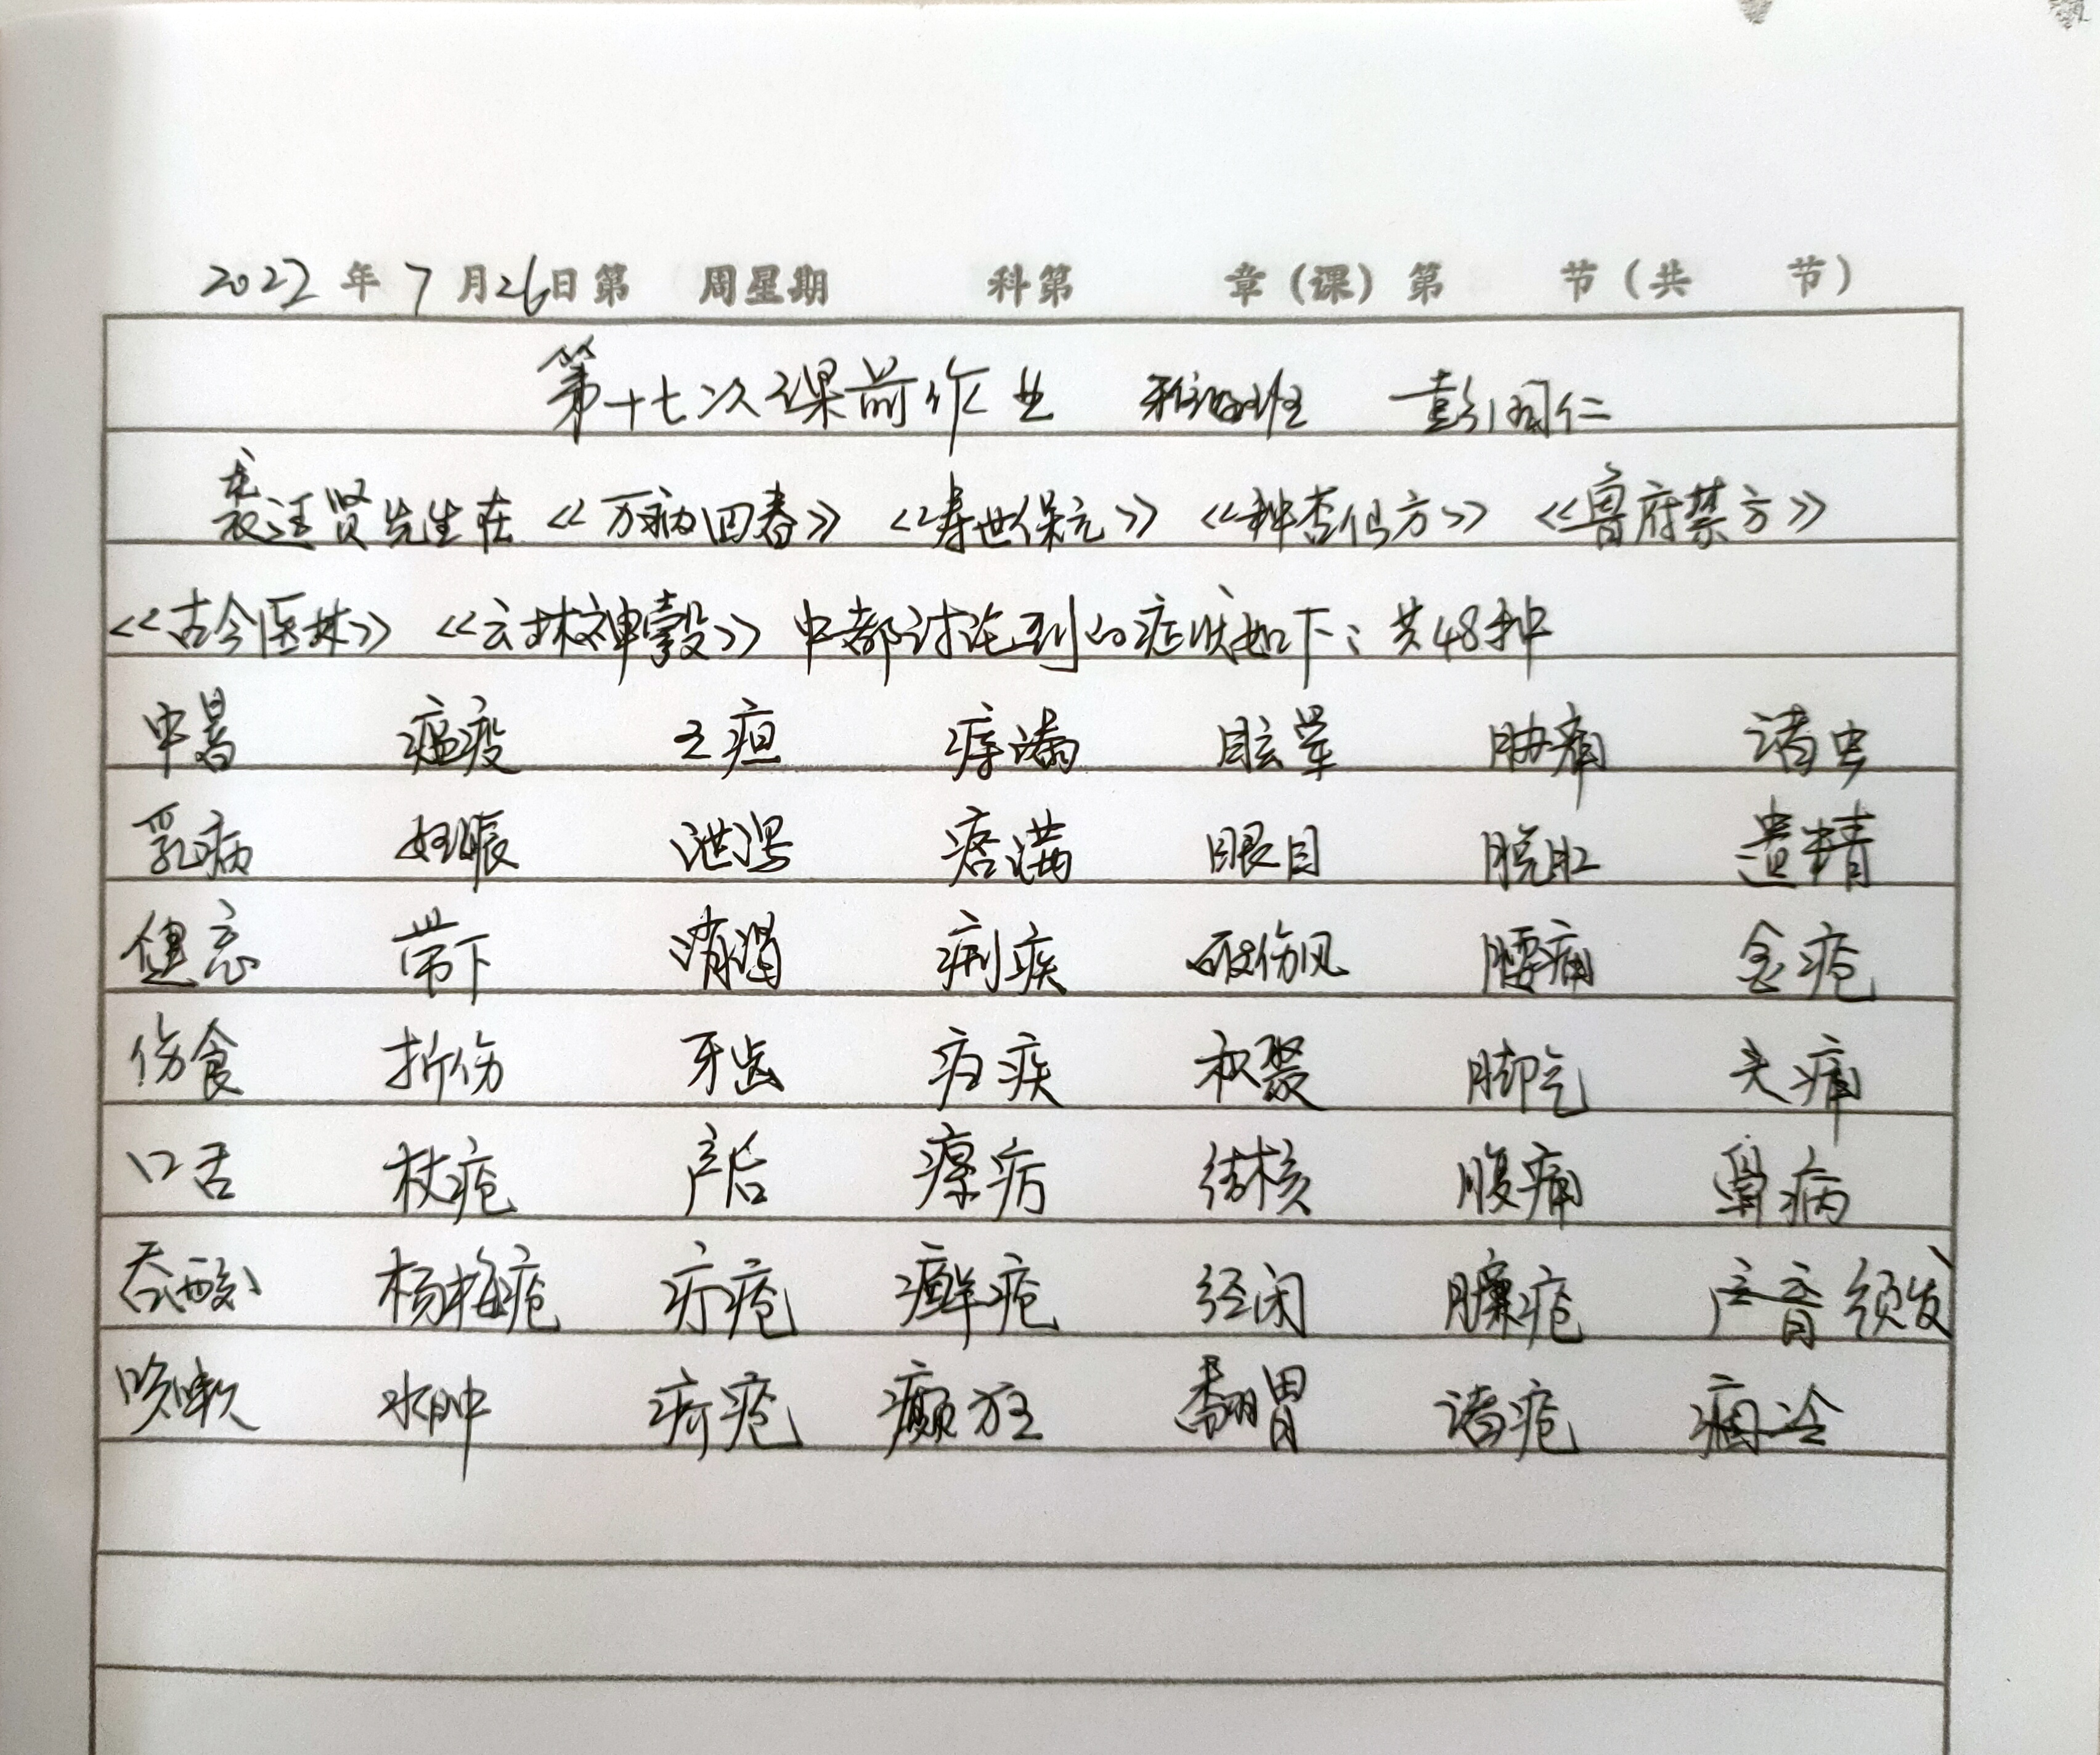 2022年7月26日第 周星期 科第 章(课)第 节(共 节)
第十七次课前作业 班 彭闰仁
龚廷贤先生在《万病回春》《寿世保元》《种杏仙方》《鲁府禁方》
《古今医林》《云林神彀》中都讨论到的症状如下：共48种
中暑 瘟疫 五疸 痞满 眩晕 胁痛 诸虫
乳病 妊娠 泄泻 痞满 眼目 脱肛 遗精
健忘 带下 消渴 痢疾 破伤风 腰痛 金疮
伤食 折伤 牙齿 疟疾 积聚 脚气 头痛
口舌 杖疮 产后 瘰疬 结核 腹痛 鼻病
吞酸 杨梅疮 疔疮 癣疮 经闭 臁疮 声音 须发
咳嗽 水肿 疥疮 癫狂 翻胃 诸疮 痼冷